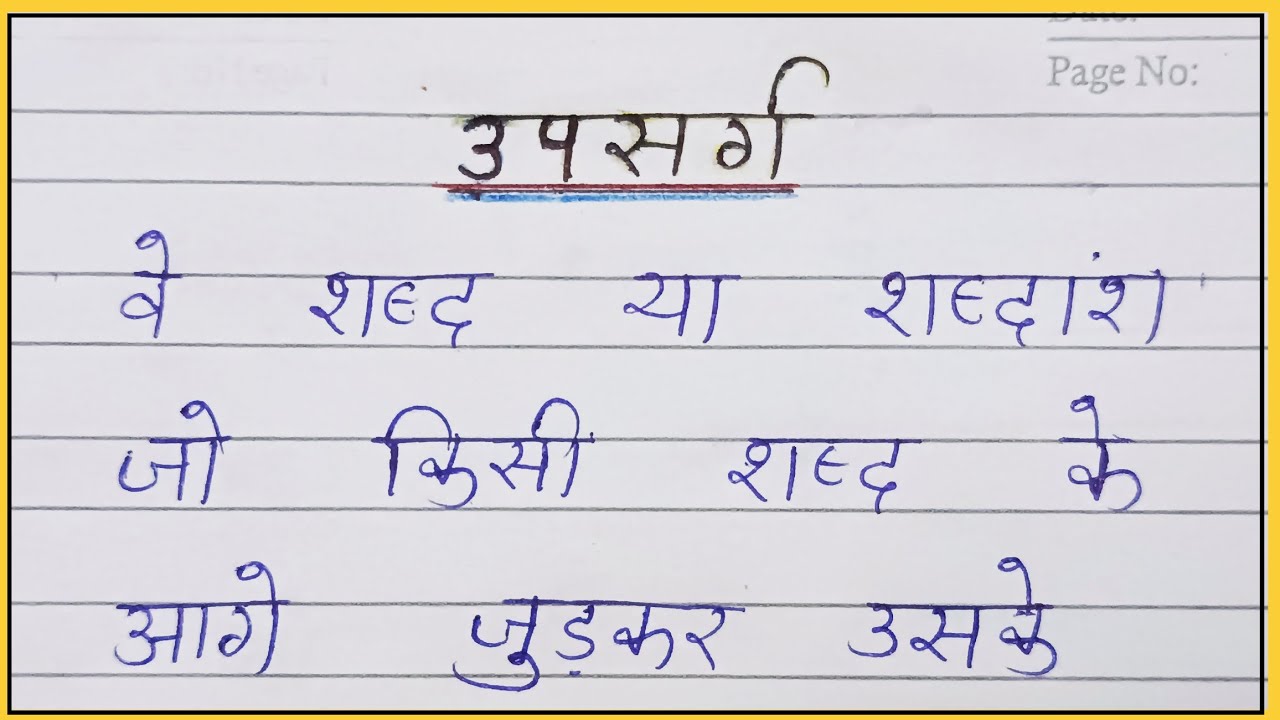 Page No:
उपसर्ग
वे शब्द या शब्दांश
जो किसी शब्द के
आगे जुड़कर उसके